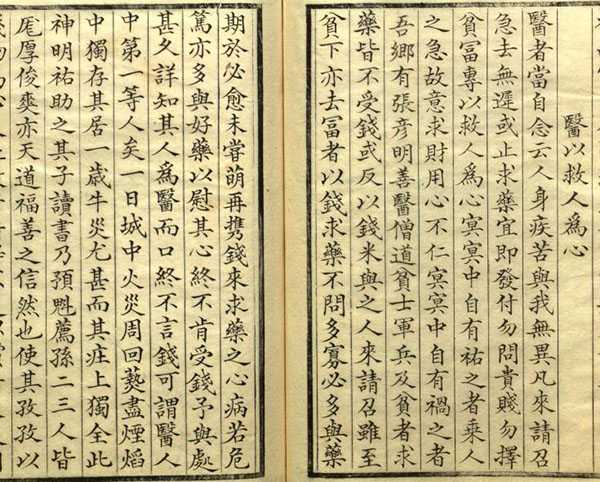 醫以救人爲心
醫者當自念云人身疾苦與我無異凡來請召
急去無遲或止求藥宜即發付勿問貴賤勿擇
貧冨專以救人爲心冥冥中自有祐之者乗人
之急故意求財用心不仁冥冥中自有禍之者
吾鄉有張彦明善醫僧道貧士軍兵及貧者求
藥皆不受錢或反以錢米與之人來請召雖至
貧下亦去冨者以錢求藥不問多寡必多與藥
期於必愈未甞萌再携錢來求藥之心病若危
篤亦多與好藥以慰其心終不肯受錢予與處
甚久詳知其人爲醫而口終不言錢可謂醫人
中第一等人矣一日城中火災周回爇盡煙熖
中獨存其居一歳牛災尤甚而其庄上獨全此
神明祐助之其子讀書乃預魁薦孫二三人皆
厖厚俊爽亦天道福善之信然也使其孜孜以